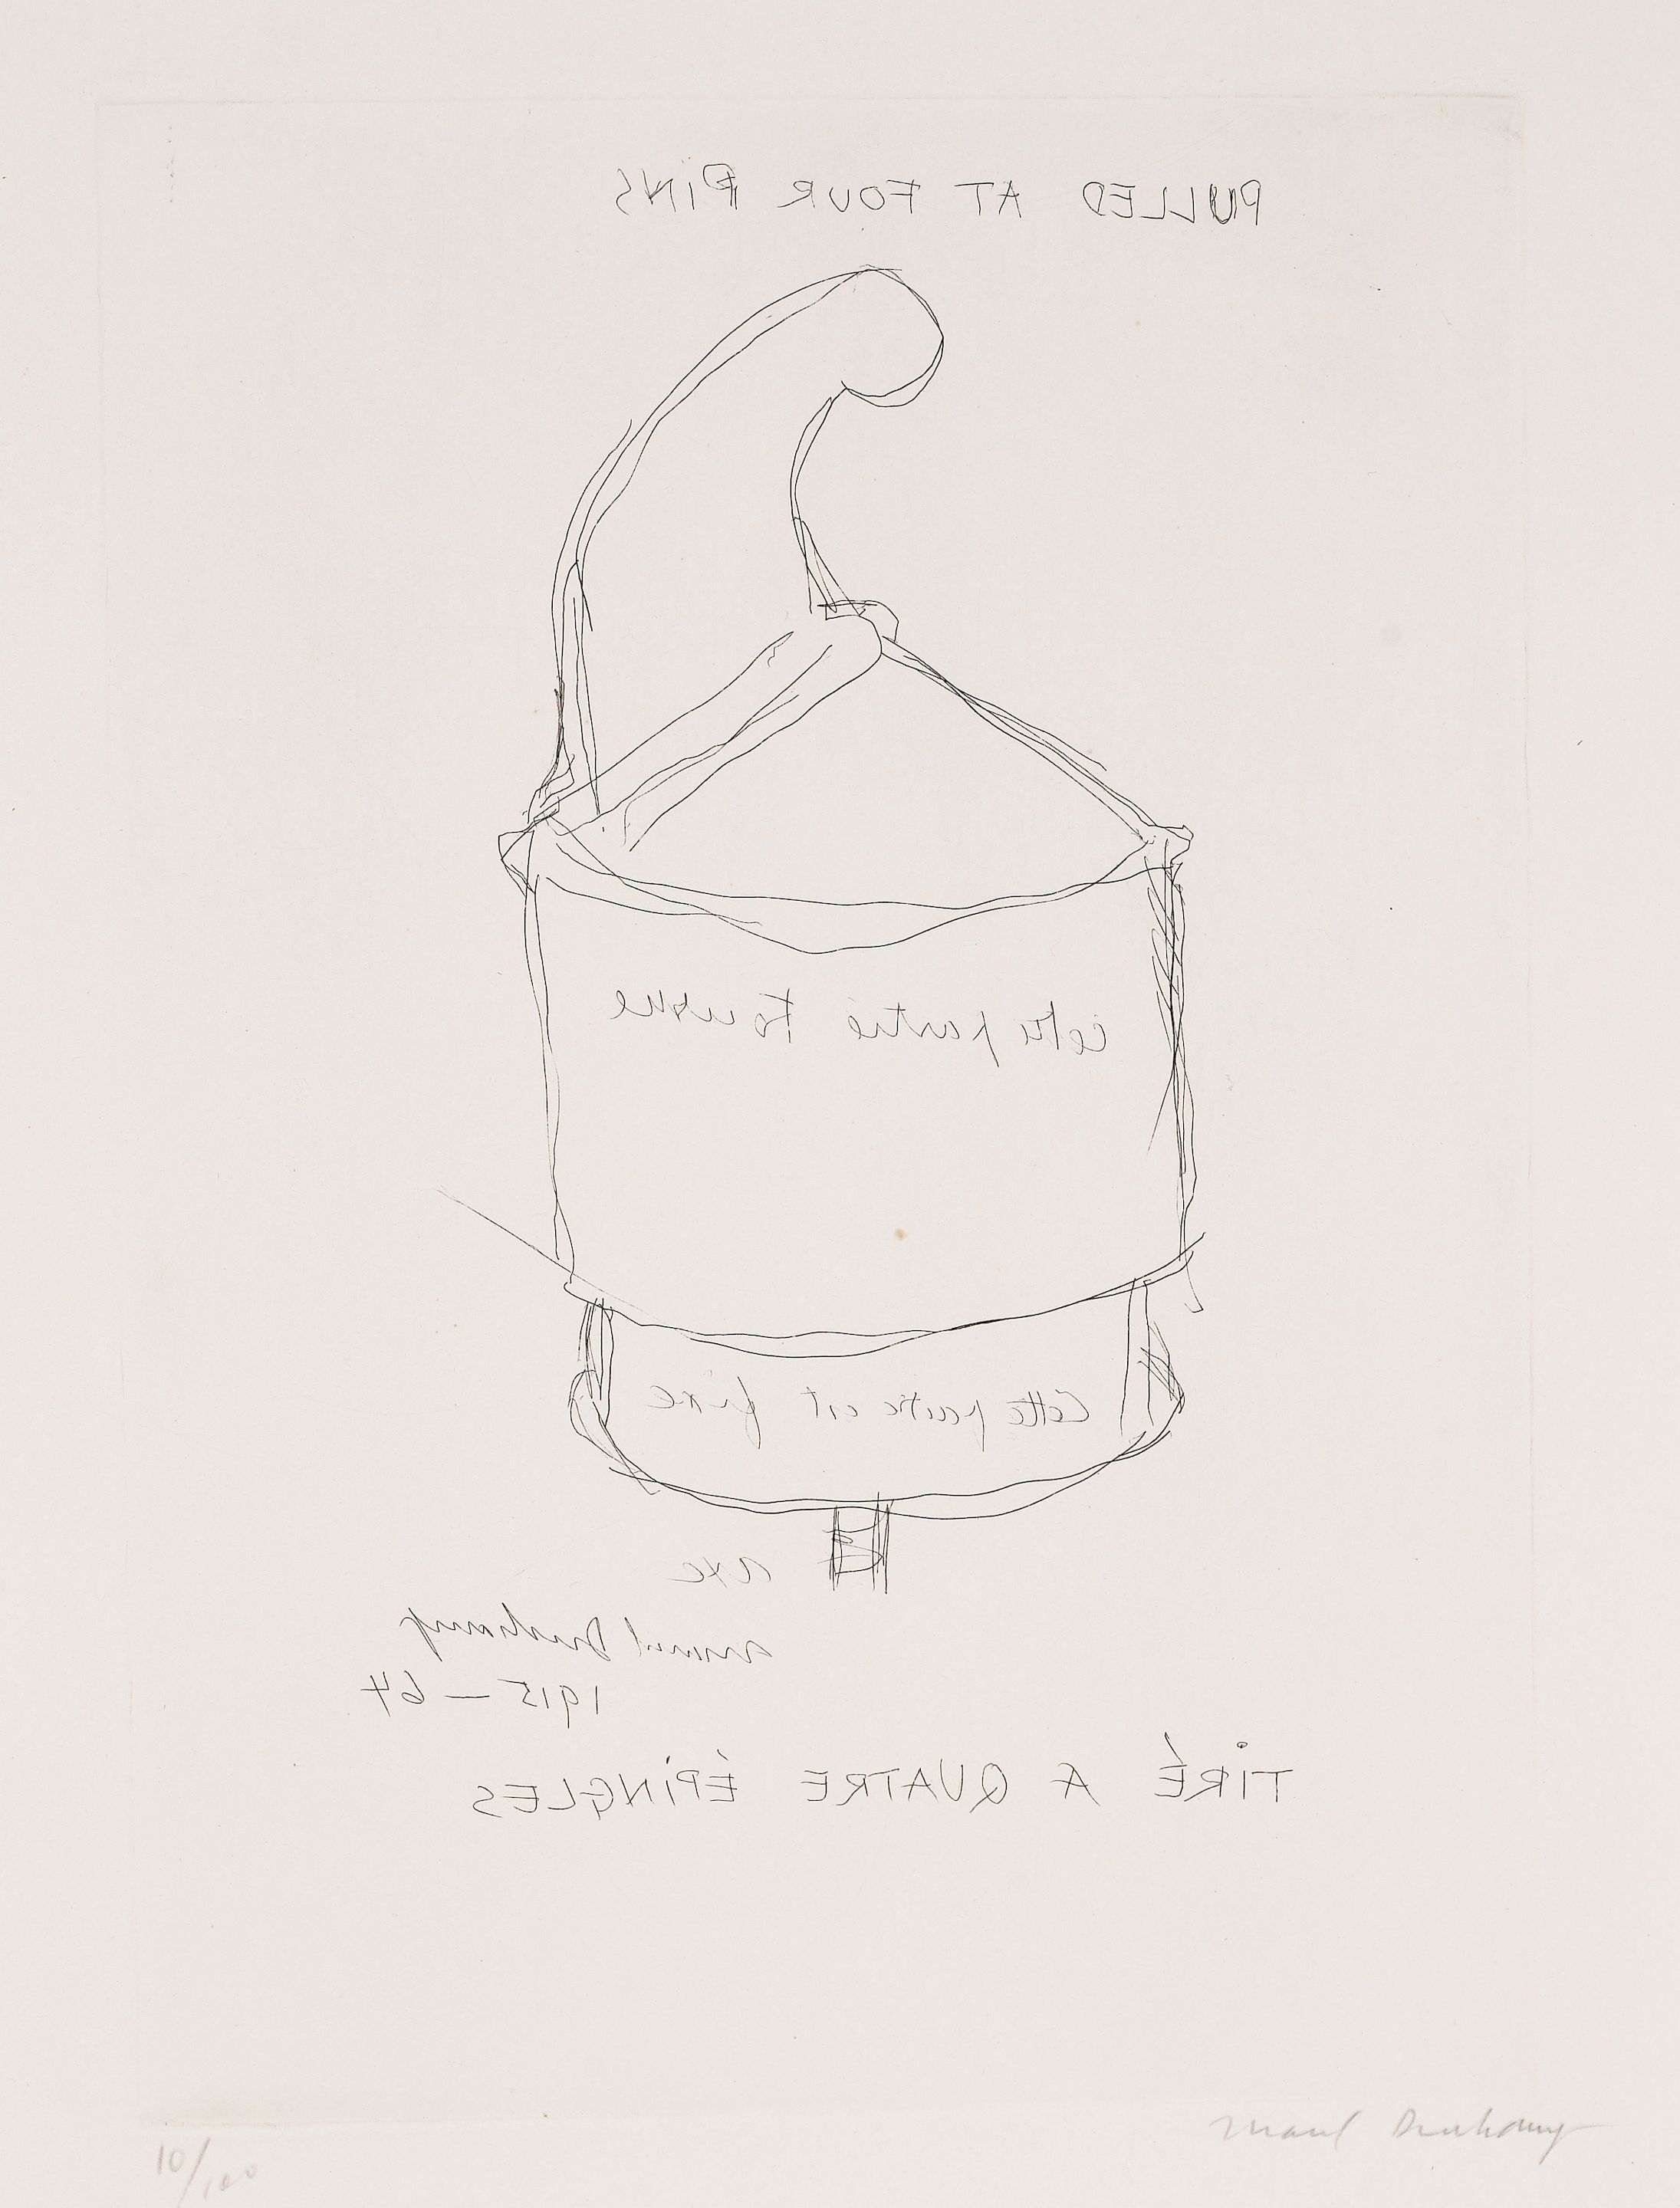 PULLED AT FOUR PINS
cette partie tourne
Cette partie est fixe
axe
Marcel Duchamp
1915 — 64
TIRÉ A QUATRE ÉPINGLES
10/100
Marcel Duchamp